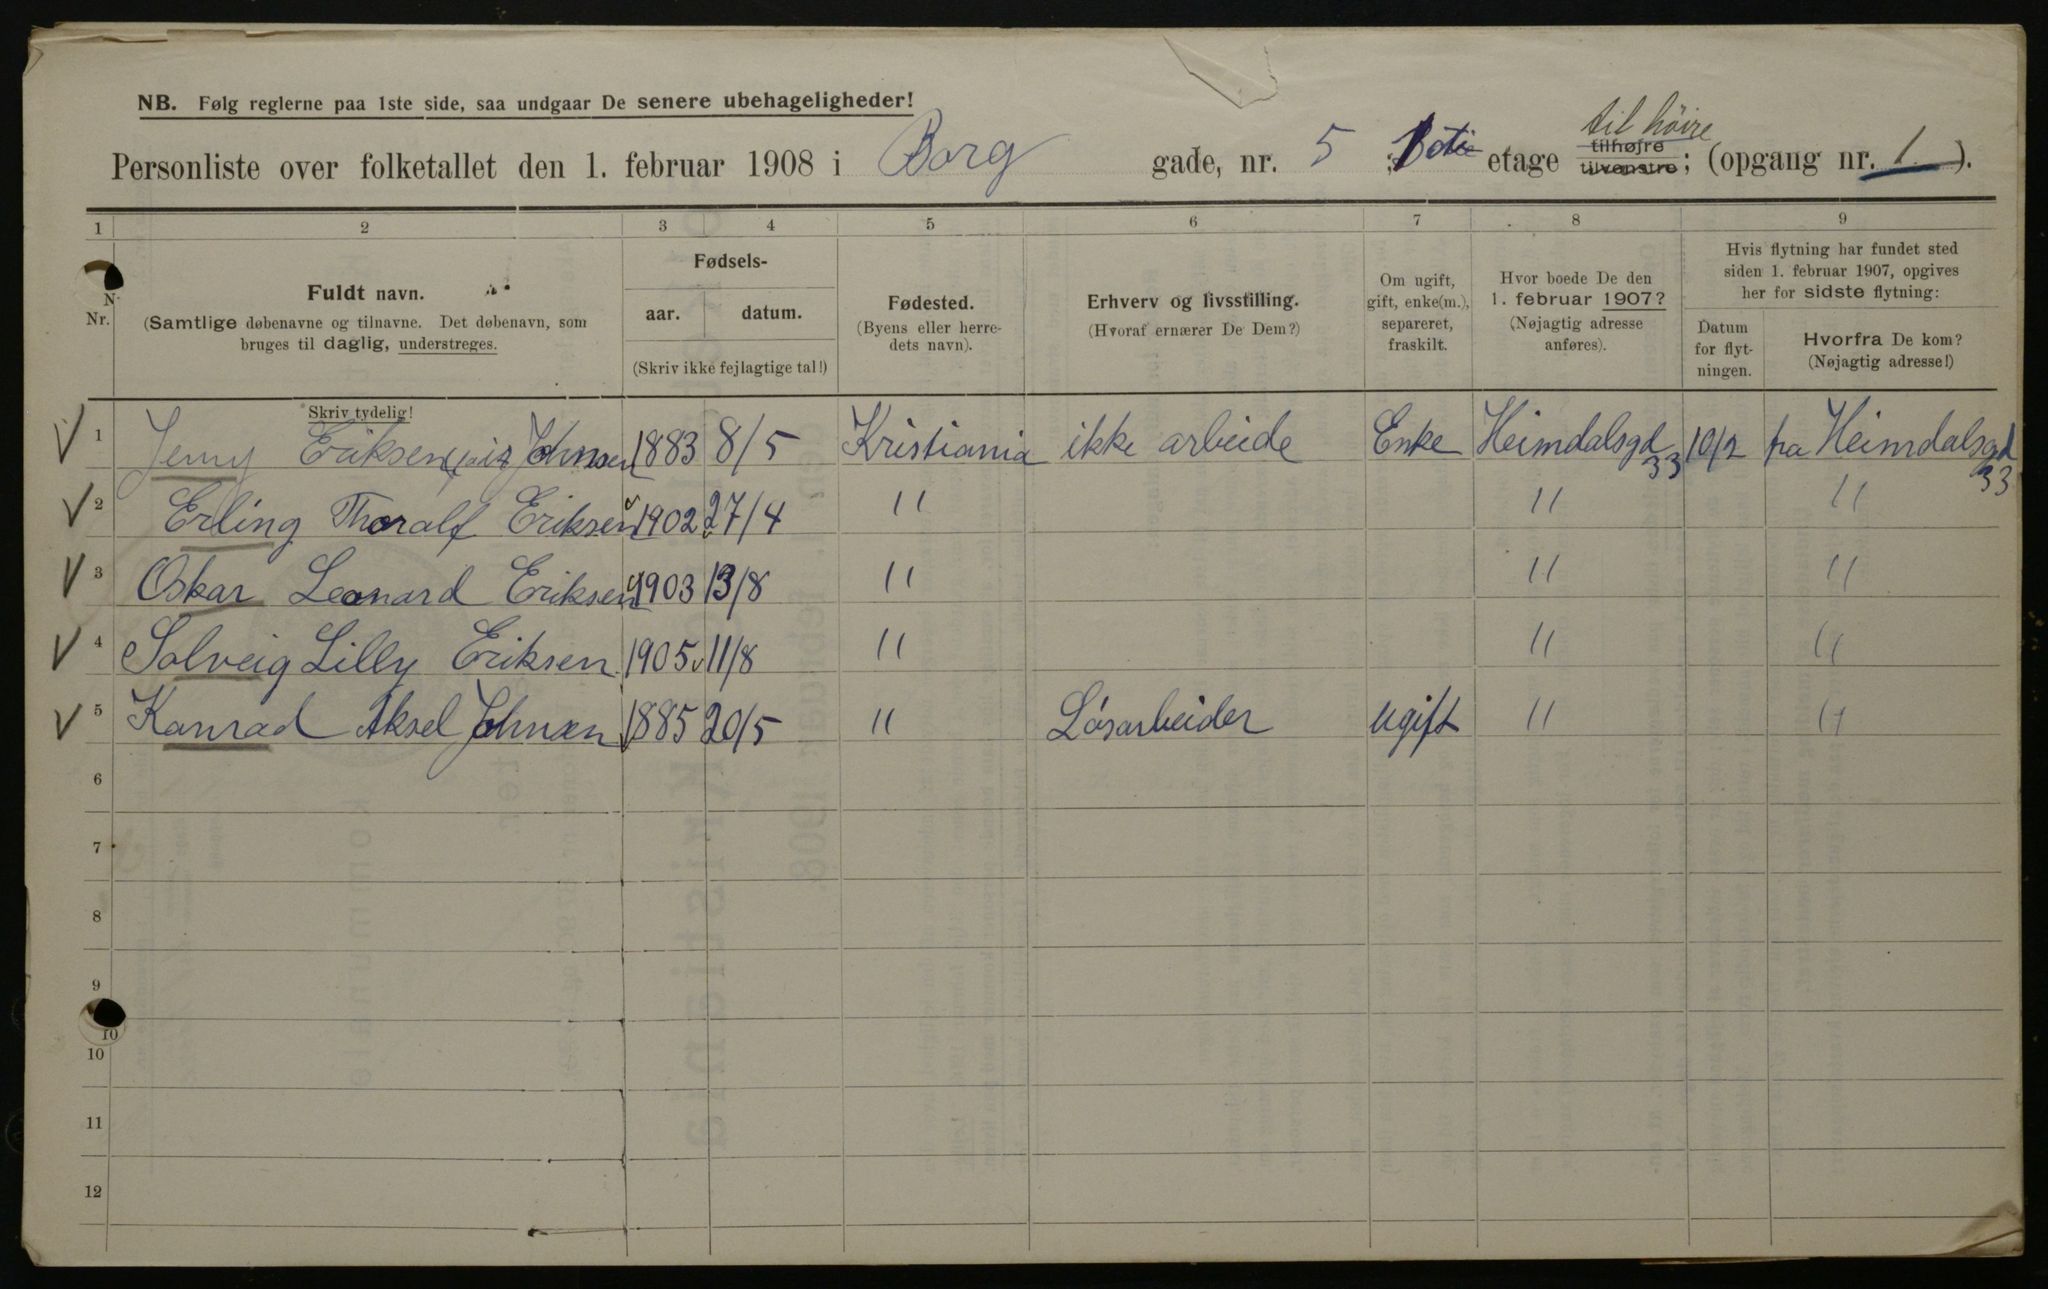 NB. Følg reglerne paa 1ste side, saa undgaar De senere ubehageligheder!
til høire
Personliste over folketallet den 1. februar 1908 i Borg gade, nr. 5 ; etage tilhøjre tilvenstre; (opgang nr. 1 ).
1 2 3 4 5 6 7 8 9
N Nr.
Fuldt navn.
(Samtlige døbenavne og tilnavne. Det døbenavn, som
bruges til daglig, understreges.
Fødsels-
aar. datum.
(Skriv ikke fejlagtige tal!)
Fødested.
(Byens eller herre-
dets navn).
Erhverv og livsstilling.
(Hvoraf ernærer De Dem?)
Om ugift,
gift, enke(m.),
separeret,
fraskilt.
Hvor boede De den
1. februar 1907?
(Nøjagtig adresse
anføres).
Hvis flytning har fundet sted
siden 1. februar 1907, opgives
her for sidste flytning:
Datum
for flyt-
ningen.
Hvorfra De kom?
(Nøjagtig adresse!)
Skriv tydelig!
1 Jenny Eriksen Johnsen 1883 8/5 Kristiania ikke arbeide Enke Heimdalsgd 33 10/2 fra Heimdalsgd 33
2 Erling Thoralf Eriksen 1902 27/4 " " "
3 Oskar Leonard Eriksen 1903 13/8 " " "
4 Solveig Lilly Eriksen 1905 11/8 " " "
5 Konrad Aksel Johnsen 1885 20/5 " Løsarbeider ugift " "
6
7
8
9
10
10
11
12